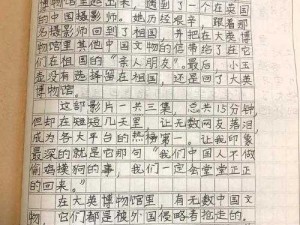 博物馆里逃出来，遇到了一个在英国
的中国摄影师。她历经艰辛，跟着那
名摄影师回到了祖国，并把在大英博
物馆里其他中国文物的信带给了在它
们在祖国的“亲人朋友”。最后，小玉
壶没有选择留在祖国，还是回了大英
博物馆。
这部影片一共三集，总共15分钟
但却在短短几天里，让无数网友落泪，
成为各大平台的热榜第一。让我印象
最深的就是它那句“我们中国人不做
偷鸡摸狗的事，我们一定会堂堂正正
的回来。”
在大英博物馆里，有无数中国文
物，它们都是被外国侵略者抢走的。